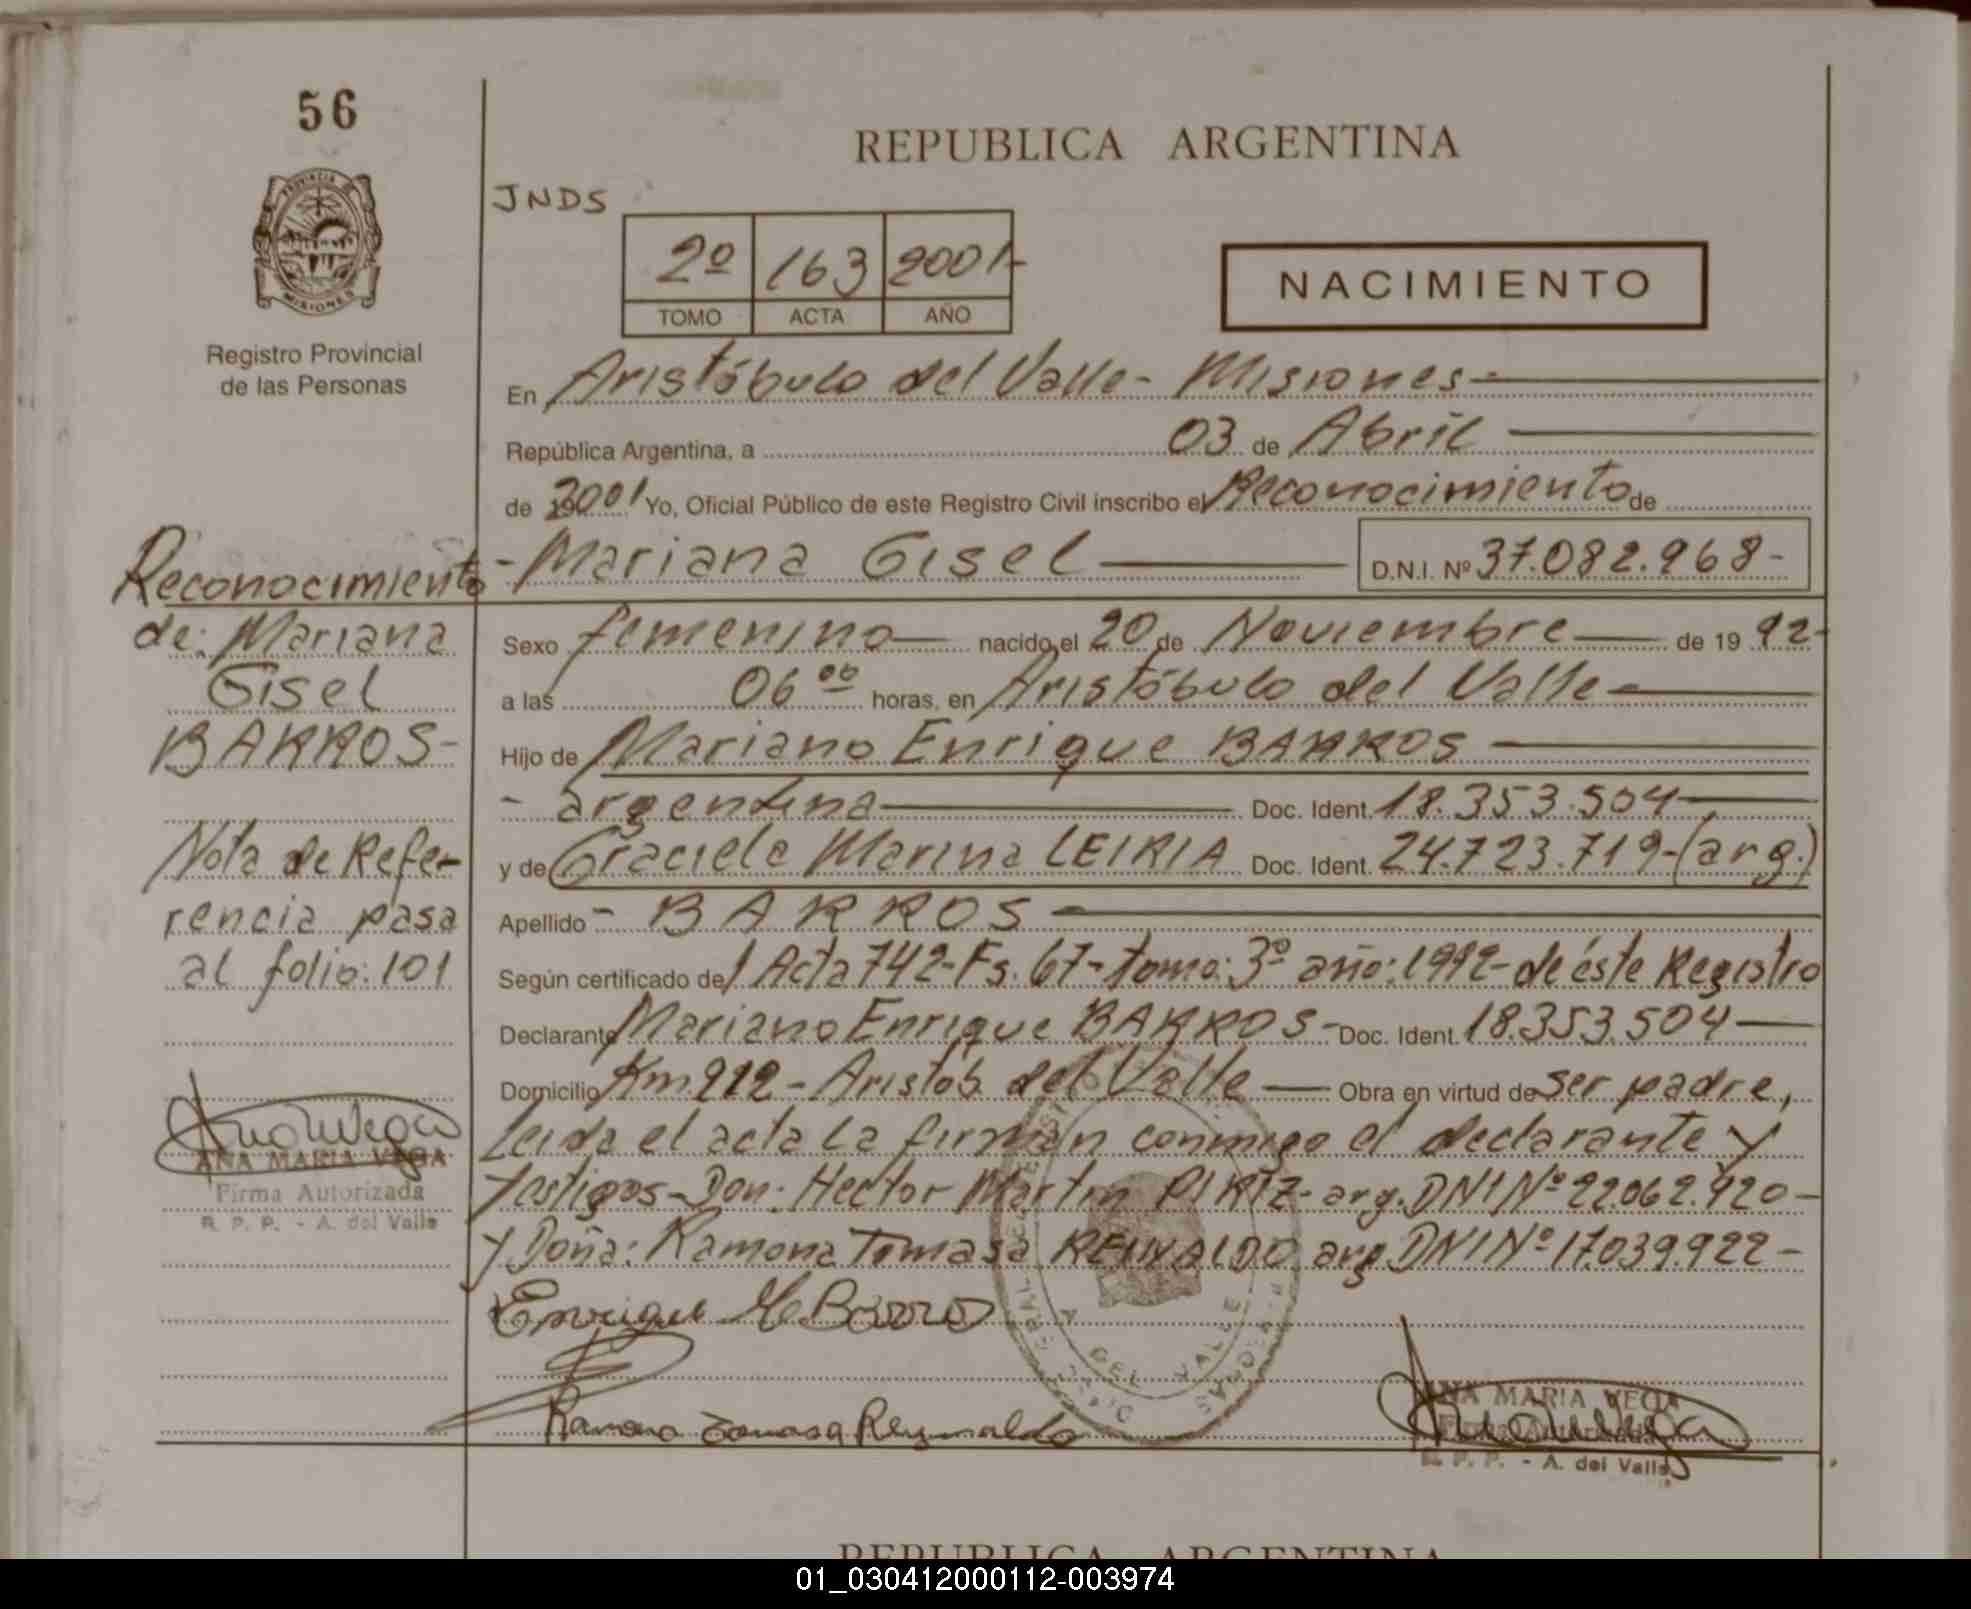 56
REPUBLICA ARGENTINA
JNDS
PROVINCIA DE
MISIONES
2º 163 2001-
TOMO ACTA AÑO
NACIMIENTO
Registro Provincial
de las Personas
En Aristóbulo del Valle- Misiones-
República Argentina, a 03 de Abril
de 2001 Yo, Oficial Público de este Registro Civil inscribo el Reconocimiento de
- Mariana Gisel D.N.I. Nº 37.082.968-
Reconocimiento
de: Mariana
Gisel
BARROS-
Nota de Refe-
rencia pasa
al folio: 101
ANA MARIA VEGA
Firma Autorizada
R. P. P. - A. del Valle
Sexo femenino nacido el 20 de Noviembre de 19 92-
a las 06 00 horas, en Aristóbulo del Valle-
Hijo de Mariano Enrique BARROS
- argentina Doc. Ident. 18.353.504
y de Graciela Marina LEIRIA Doc. Ident. 24.723.719-(arg.)
Apellido - BARROS -
Según certificado de Acta 742-Fs. 67-tomo: 3º año: 1992- de éste Registro
Declarante Mariano Enrique BARROS- Doc. Ident. 18.353.504
Domicilio Km 212 - Aristób. del Valle Obra en virtud de ser padre,
Leida el acta la firman conmigo el declarante y
testigos- Don: Hector Martin PIRIZ- arg. DNI Nº 22.062.920-
y Doña: Ramona Tomasa REINALDO arg DNI Nº 17.039.922-
Enrique M Barro
Ramona Tomasa Reynaldo
A. DEL VALLE
ANA MARIA VEGA
Firma Autorizada
R. P. P. - A. del Valle
REPUBLICA ARGENTINA
01_030412000112-003974